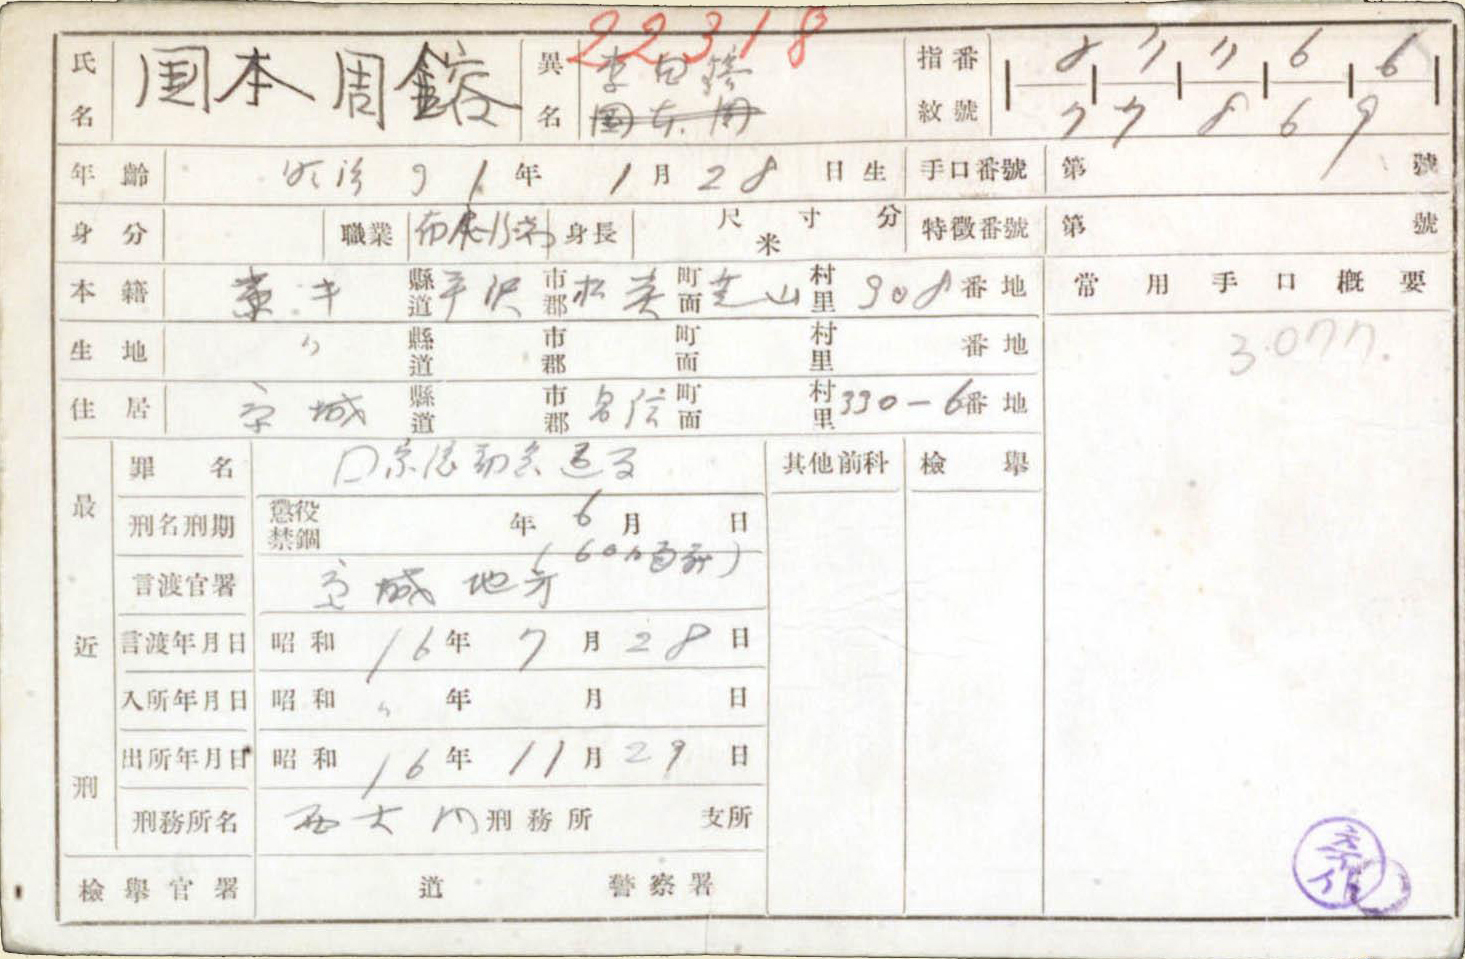 22318
氏名 国本周鎔 異名 李周鎔 国本周 指紋番號 8 7 7 6 6
7 7 8 6 9
年齡 明治 91年 1月28日生 手口番號 第 號
身分 職業 身長 尺寸分 米 特徵番號 第 號
本籍 京キ 縣道 平沢 市郡 松炭 町面 芝山 村里 908番地 常用手口概要
生地 〃 縣道 市郡 町面 村里 番地 3.077.
住居 京城 縣道 市郡 町面 村里 330-6番地
最近刑 罪名 其他前科 檢擧
刑名刑期 懲役 禁錮 年6月日
言渡官署 京城地方
言渡年月日 昭和16年7月28日
入所年月日 昭和〃年月日
出所年月日 昭和16年11月29日
刑務所名 西大門刑務所 支所
檢擧官署 道 警察署